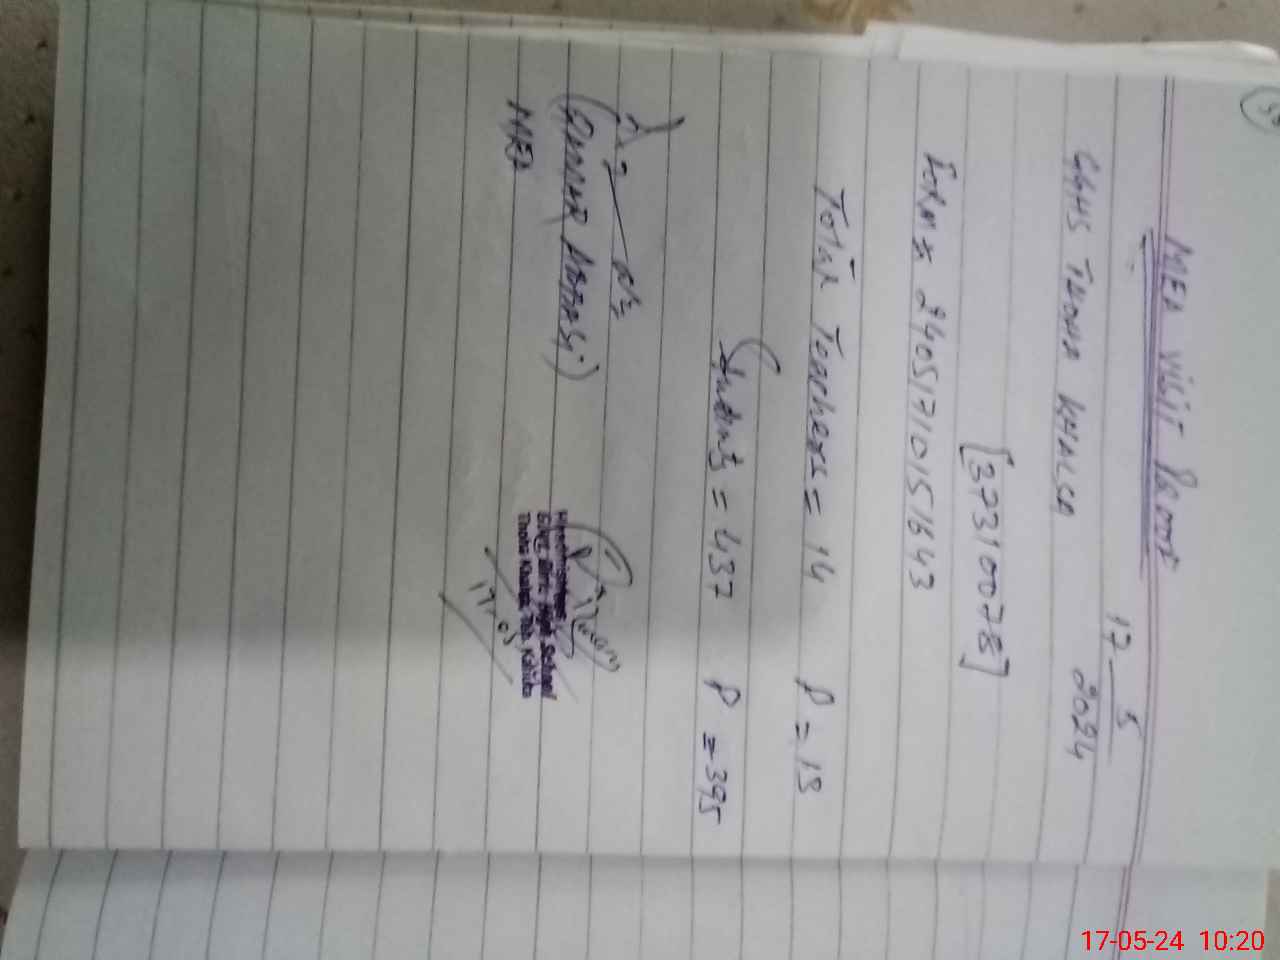 MEA visit Report
17 5
2024
GGHS THOHA KHALSA
[37310078]
FORM # 24051710151643
Total Teachers = 14 P = 13
Students = 437 P = 395
ABBASI)
MEA
Headmistress
Govt. Girls High School
Thoha Khalsa Teh. Kahuta
17-05
17-05-24 10:20